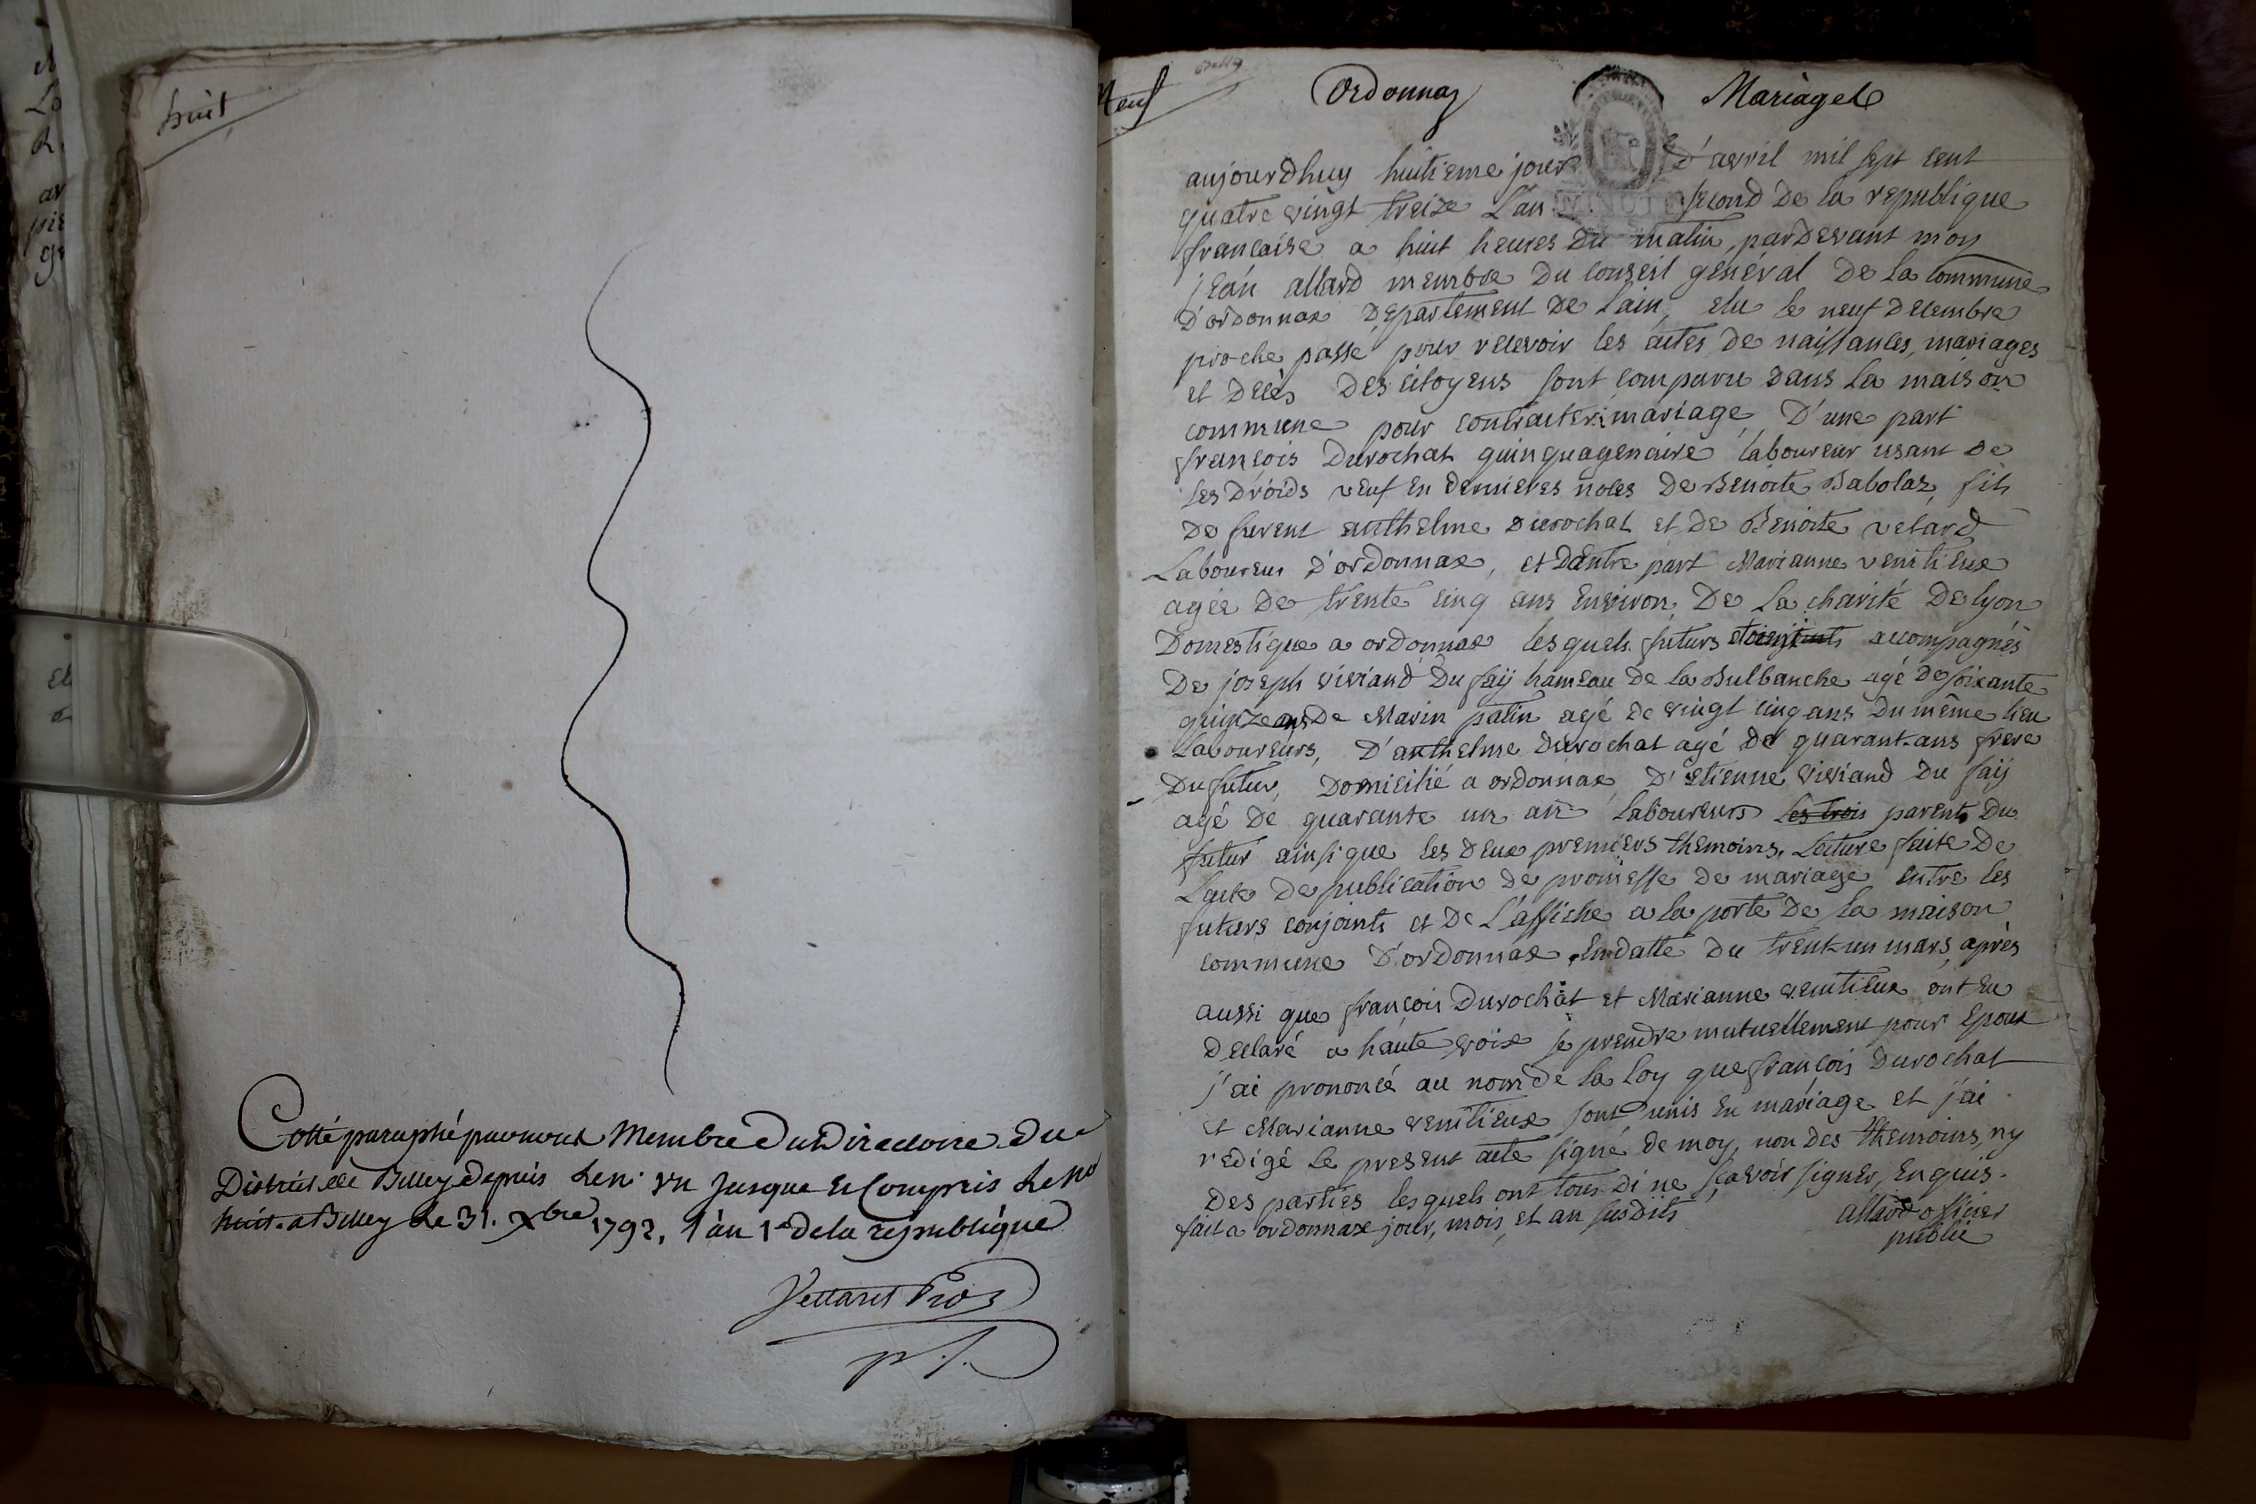 huit
Cotté paraphé par nous Membre Du Directoire Du
District de Belley depuis le n.° un Jusque et Compris le n°
huit. a Belley le 31. Xbre 1792, l'an 1er de la république
p.s.
Neuf
Ordonnaz
Mariages
MINUTE
aujourdhuy huitieme jour d'avril mil sept cent
quatre vingt treize L'an second de la republique
francaise a huit heures du matin, pardevant moy
jean allard membre du conseil genéral de la commune
d'ordonnax departement de Lain, elu le neuf decembre
proche passé pour recevoir les actes de naissances, mariages
et decès des citoyens sont comparu dans la maison
commune pour contracter mariage, D'une part
françois Durochat quinquagenaire laboureur usant de
ses droids veuf en dernieres noces de Benoite Babolaz, fils
de furent anthelme durochat et de Benoite velard
Laboureur d'ordonnax, et d'autre part Marianne venitieux
agée de trente cinq ans environ, De La charité de lyon
Domestique a ordonnax lesquels futurs etoient accompagnés
De joseph viviand du faÿ hameau de la Bulbanche agé de soixante
quinze ans De Marin patin agé de vingt cinq ans du même lieu
Laboureurs, D'anthelme durochat agé de quarant-ans frere
Du futur, Domicilié a ordonnax, D'etienne viviand du faÿ
agé de quarante un an laboureurs les trois parents du
futur ainsi que les deux premiers themoins. Lecture faite de
L'acte de publication de promesse de mariage entre les
futurs conjoints et de L'affiche a la porte de la maison
commune d'ordonnax en datte du trente un mars, après
aussi que françois Durochat et Marianne venitieux ont eu
declaré a haute voix se prendre mutuellement pour epoux
j'ai prononcé au nom de la loy que françois Durochat
et Marianne venitieux sont unis en mariage et j'ai
redigé le present acte signé de moy, non des themoins, ny
Des parties lesquels ont tous di ne sçavoir signer, enquis.
fait a ordonnax jour, mois, et an susdits
allard officier
public